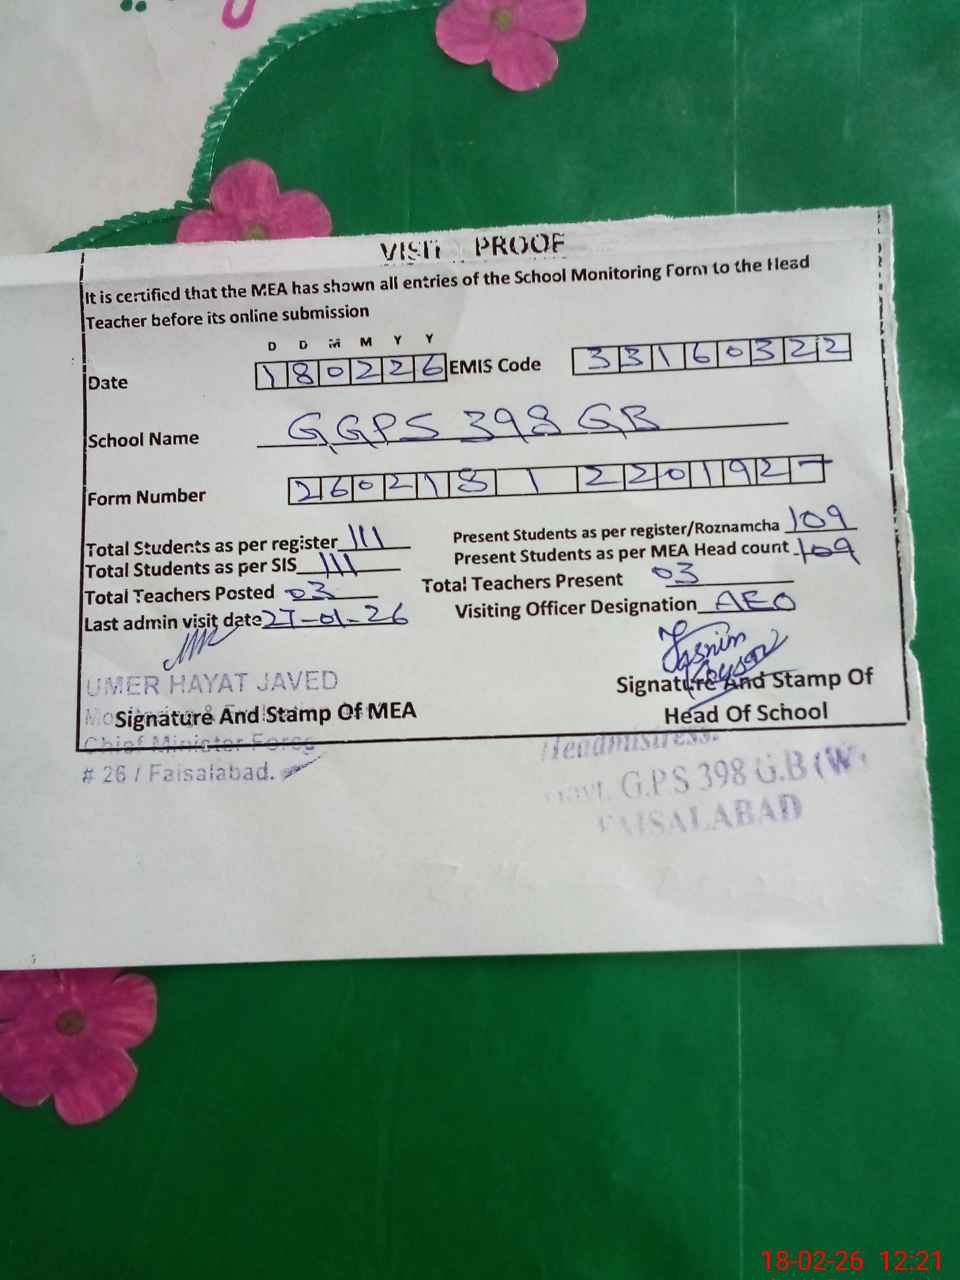 VISIT PROOF
It is certified that the MEA has shown all entries of the School Monitoring Form to the Head
Teacher before its online submission
D D M M Y Y
Date 180226 EMIS Code 33160322
School Name GGPS 398 GB
Form Number 260218 1 2201927
Total Students as per register 111 Present Students as per register/Roznamcha 109
Total Students as per SIS 111 Present Students as per MEA Head count 109
Total Teachers Posted 03 Total Teachers Present 03
Last admin visit date 27-01-26 Visiting Officer Designation AEO
UMER HAYAT JAVED
Signature And Stamp Of MEA
Chief Minister Force
# 26 / Faisalabad.
Tasnim
Signature And Stamp Of
Head Of School
Headmistress.
Govt. G.P.S 398 G.B (W)
FAISALABAD
18-02-26 12:21